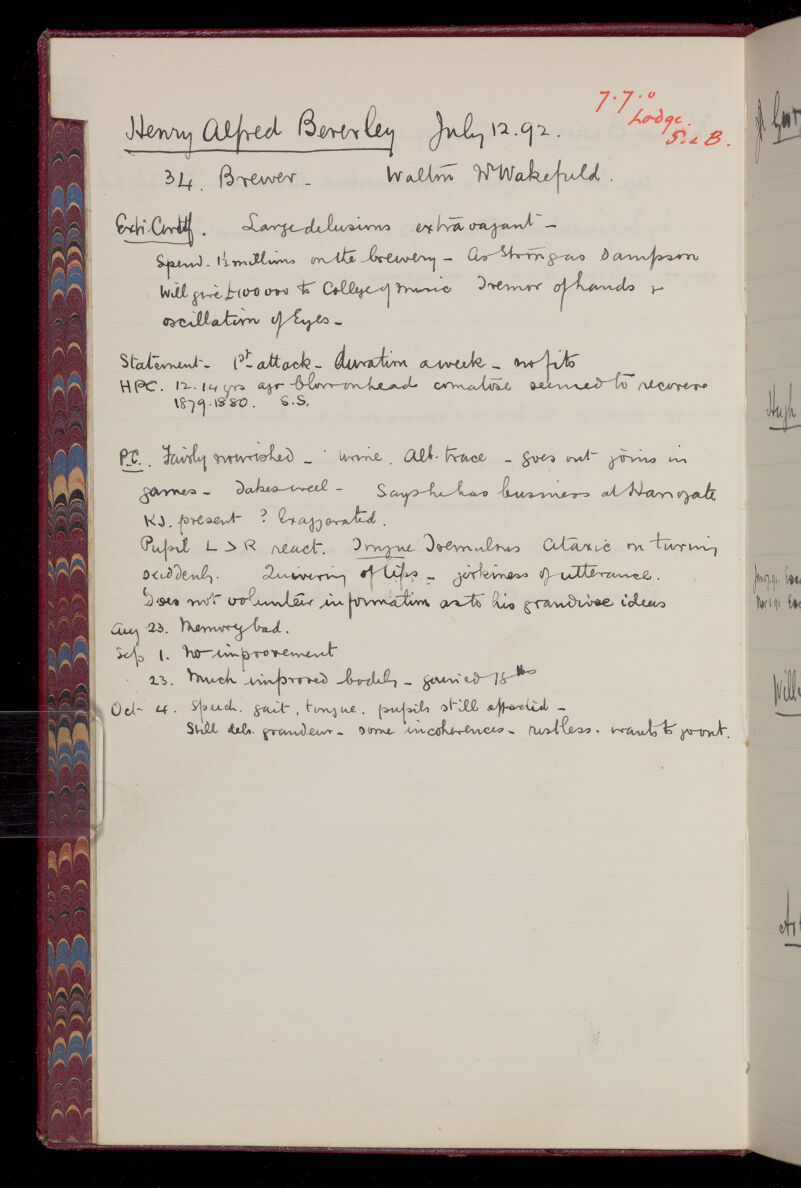 7.7.0
Lodge.
S. & B.
Henry Alfred Beverley July 12.92.
34. Brewer - Walton Nr Wakefield.
Large delusions extravagant -
Spend. 1½ millions on the brewery - As strong as Sampson
Will give £100000 to College of Music Tremor of hands &
oscillation of Eyes -
Statement - 1st attack - duration a week - no fits
HPC. 12.14 yrs ago blow on head comatose seemed to recover
1879-1880. S.S.
P.C. Fairly nourished - urine. Alb. trace - goes out joins in
games - Takes well - Says he has business at Harrogate
KJ. present ? Exaggerated.
Pupil L > R react. Tongue Tremulous Ataxic on turning
suddenly. Quivering of lips - jerkiness of utterance.
Does not volunteer information as to his grandiose ideas
Aug 23. Memory bad.
Sep 1. No improvement
23. Much improved bodily - gained 18 lbs
Oct 4. Speech. gait, tongue. pupils still affected -
Still dels. grandeur - some incoherences - restless. wants to go out.
Hugh